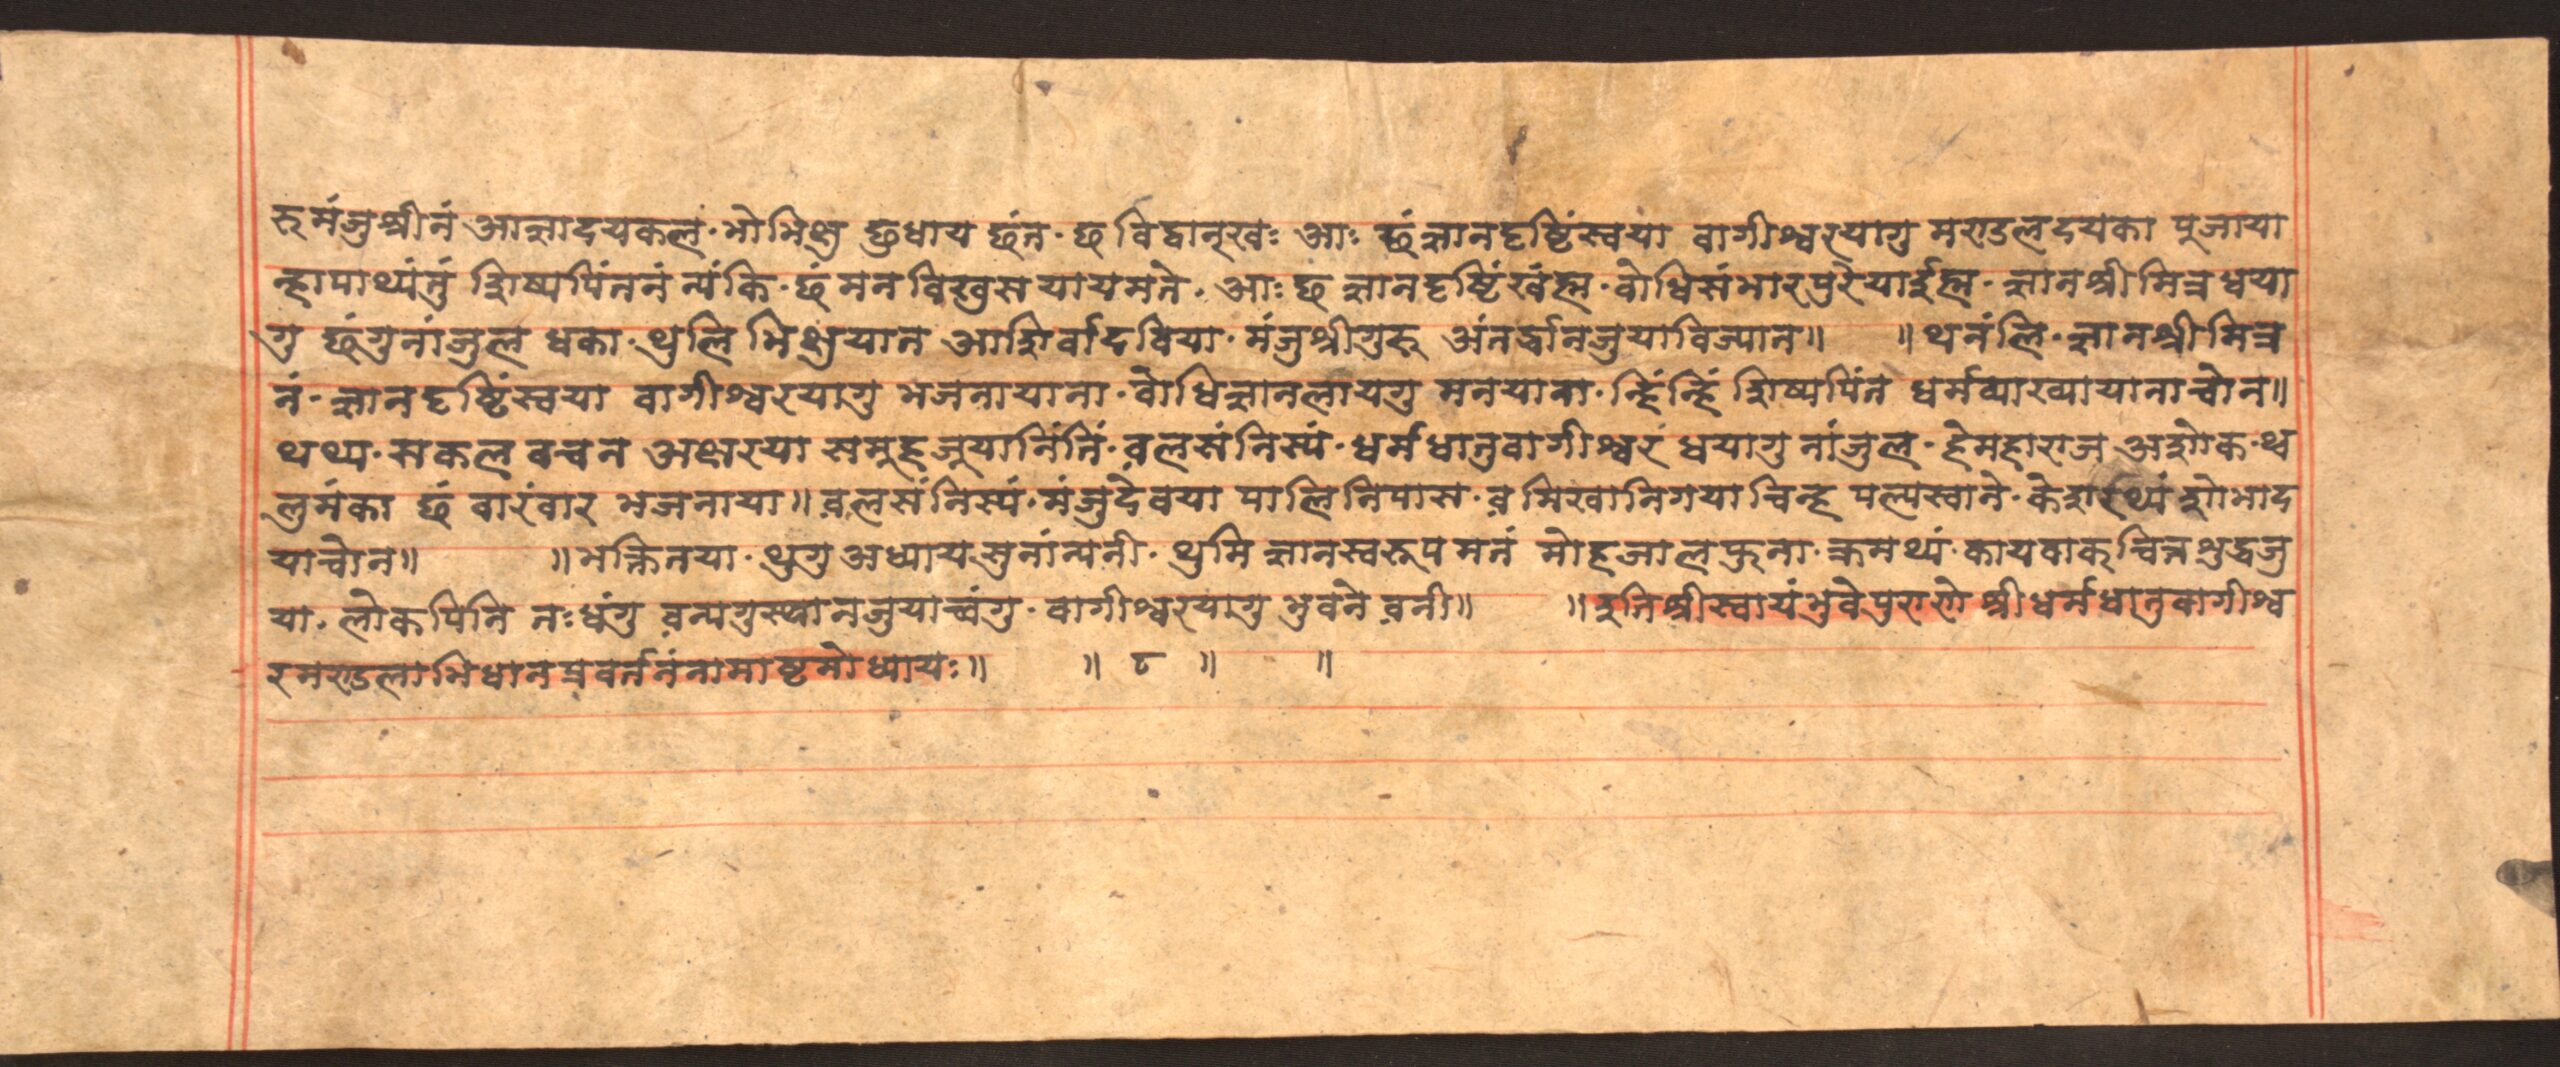 रु मंजुश्रीनं आज्ञादयकलं· भो भिक्षु छुधाय छंत· छ विद्वान्‌खः आः छं ज्ञानदृष्टिंस्वया वागीश्वरयागु मण्डलदयका पूजाया
न्ह्रापाथ्यंतुं शिष्यपिंतनं न्यंकि· छं मनविखुसयायमते· आः छ ज्ञानदृष्टिंखंह्म· बोधिसंभारपुरेयाईह्म· ज्ञानश्रीमित्रधया
गु छंगुनांजुल धका· थुलि भिक्षुयात आशिर्वादविया· मंजुश्रीगुरु अंतर्द्धानजुयाविज्यात॥ ॥थनंलि· ज्ञानश्रीमित्र
नं· ज्ञानदृष्टिंस्वया वागीश्वरयागु भजनायाना· बोधिज्ञानलायगु मनयाना· न्हिंन्हिं शिष्यपिंत धर्मव्याख्यायानाचोन॥
थथ्य· सकल वचन अक्षरया समुहजूयानिंतिं· वलसंनिस्यं· धर्मधातुवागीश्वरं धयागु नांजुल· हेमहाराज अशोक· थ्व
लुमंका छं वारंवार भजनाया॥ वलसंनिस्यं· मंजुदेवया पालिनिपास· वमिखानिगयाचिन्ह पल्पस्वाने· केशरथ्यं शोभाद
याचोन॥ ॥भक्तितया· थुगु अध्याय सुनांन्यनी· थुमि ज्ञानस्वरूपमनं मोहजालफुना· क्रमथ्यं· कायवाक्‌चित्तशुद्धजु
या· लोकपिनि नःधंगु वन्यगुस्थानजुयाच्वंगु· वागीश्वरयागु भुवने वनी॥ ॥इतिश्रीस्वायंभुवेपुराणे श्रीधर्मधातुवागीश्व
रमण्डलाभिधानप्रवर्तनंनामाष्टमोध्यायः॥ ॥ ८ ॥ ॥